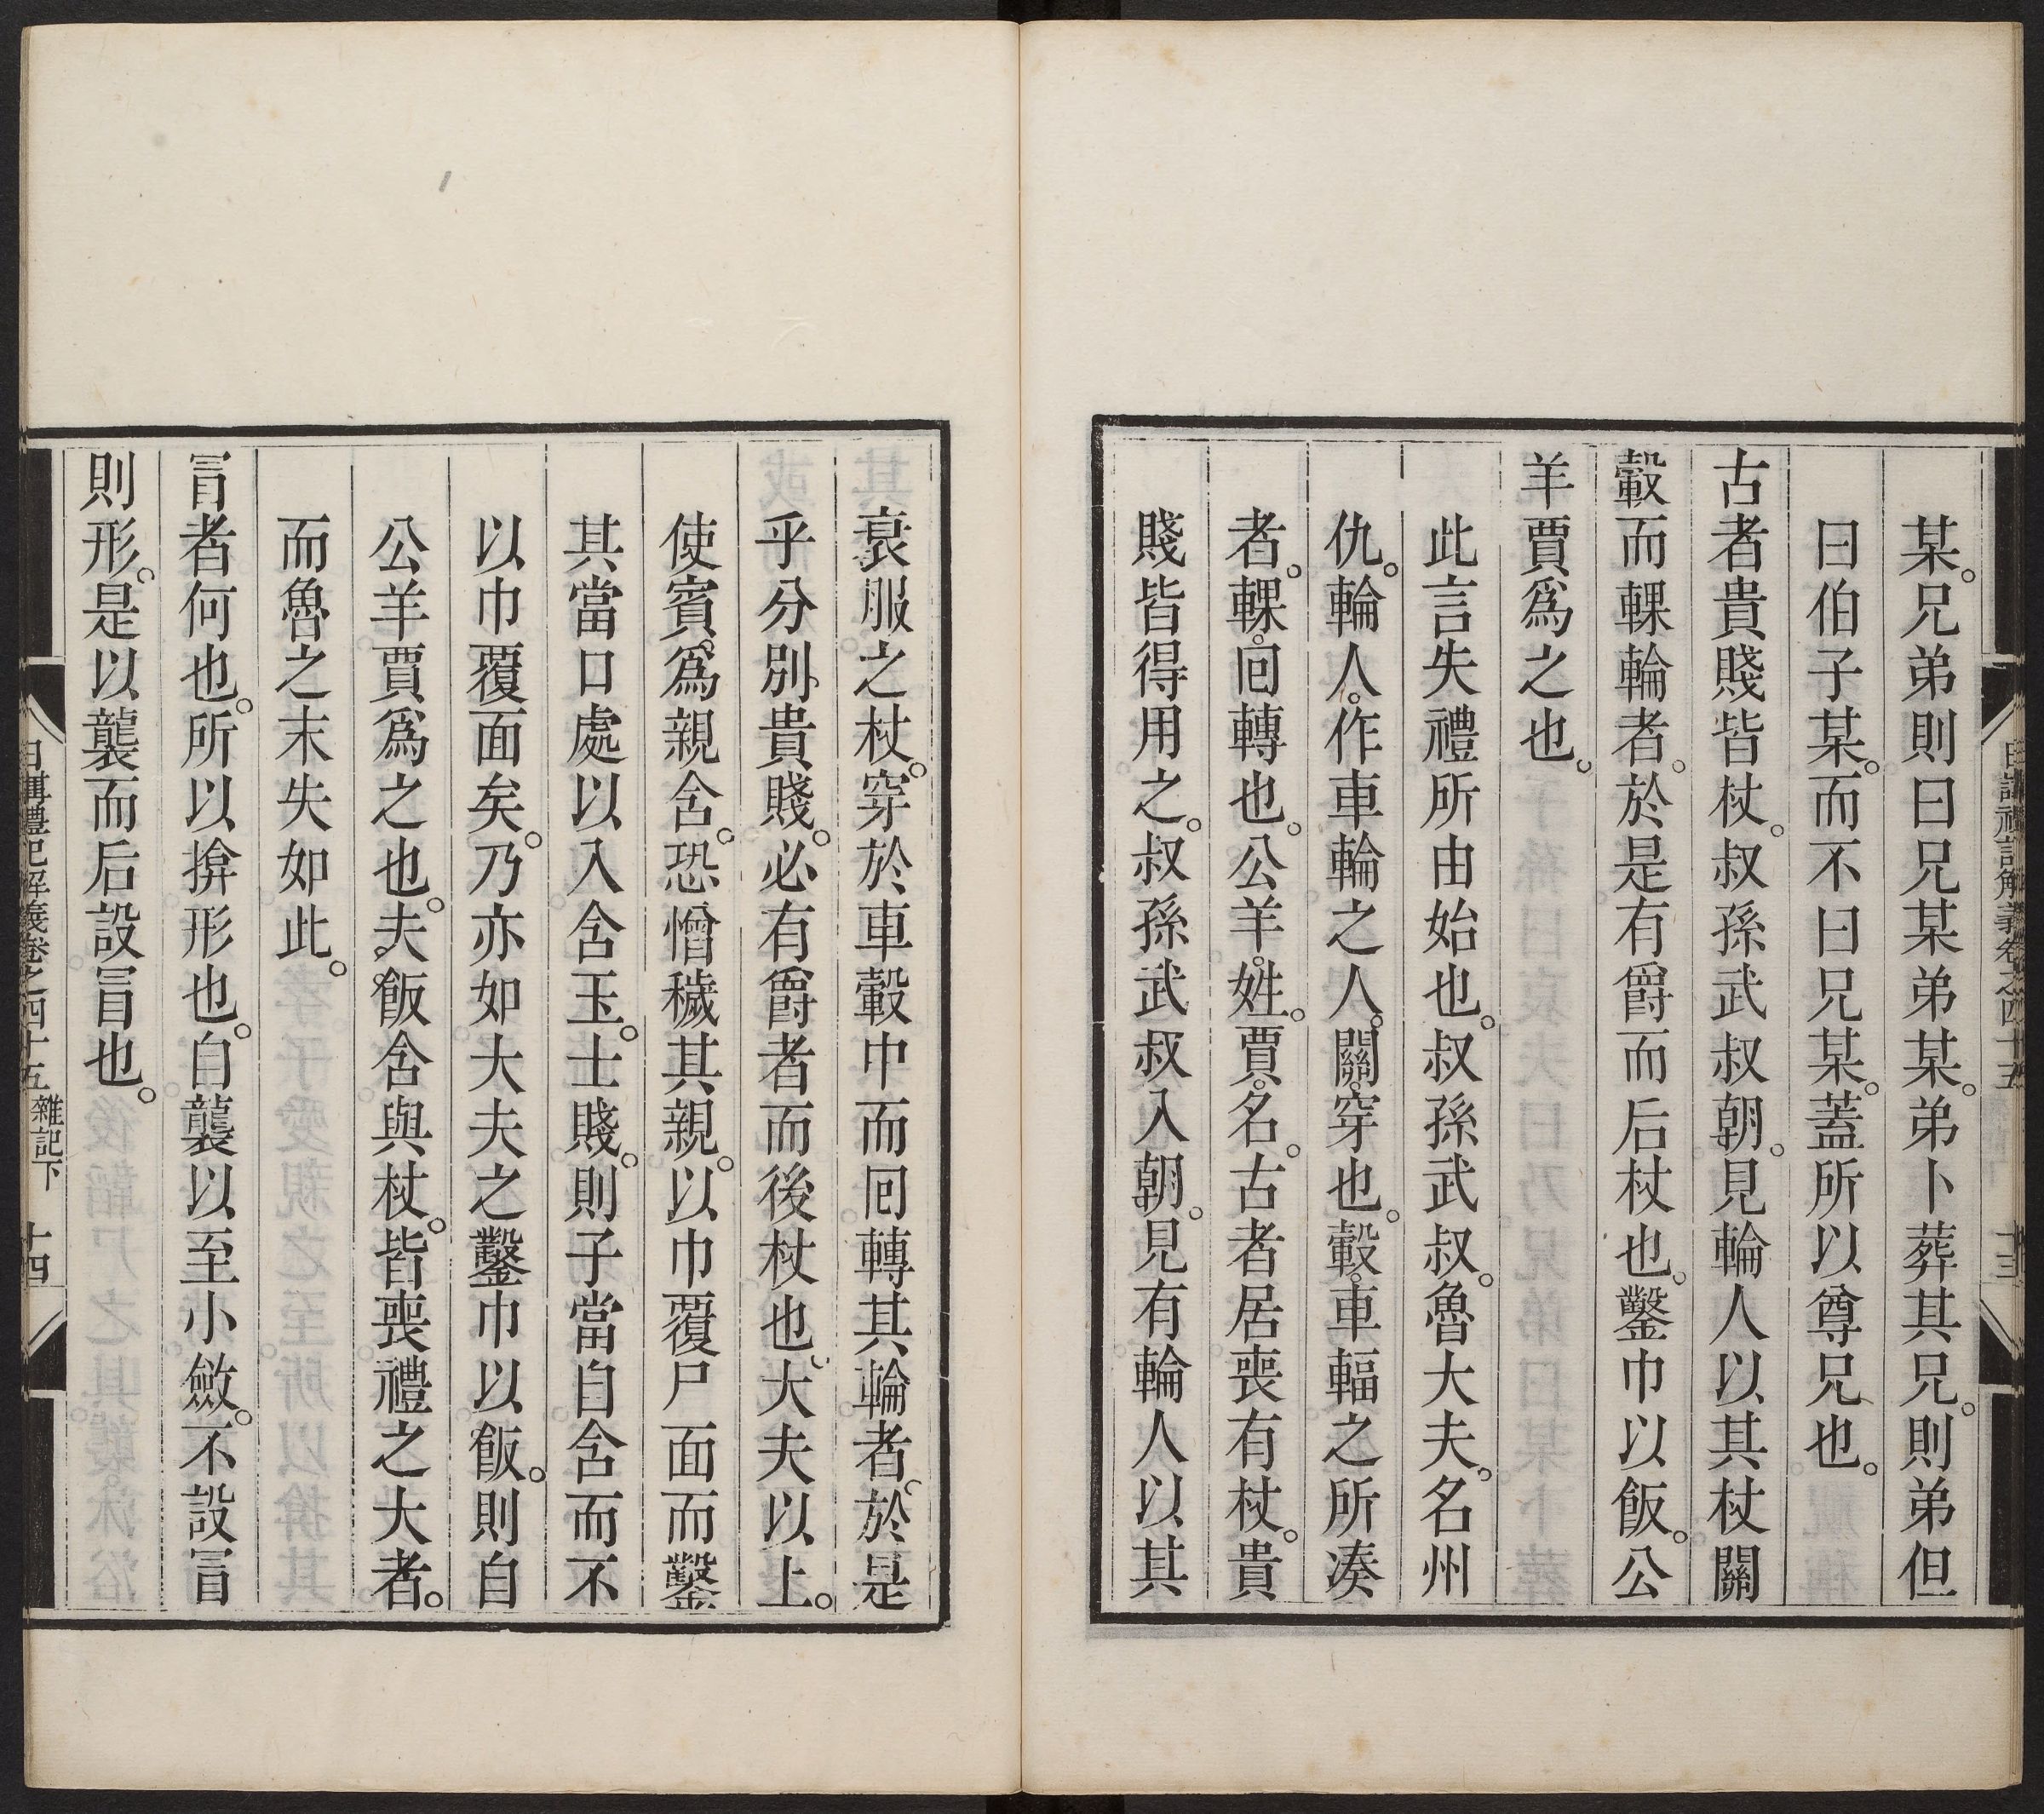 某。兄弟則曰兄某弟某。弟卜葬其兄。則弟但
曰伯子某。而不曰兄某。蓋所以尊兄也。
古者貴賤皆杖。叔孫武叔朝。見輪人以其杖關
轂而輠輪者。於是有爵而后杖也。鑿巾以飯。公
羊賈爲之也。
此言失禮所由始也。叔孫武叔。魯大夫。名州
仇。輪人。作車輪之人。關。穿也。轂。車輻之所湊
者。輠。囘轉也。公羊。姓。賈。名。古者居喪有杖。貴
賤皆得用之。叔孫武叔入朝。見有輪人以其
衰服之杖。穿於車轂中而囘轉其輪者。於是
乎分別貴賤。必有爵者而後杖也。大夫以上。
使賓爲親含。恐憎穢其親。以巾覆尸面而鑿
其當口處以入含玉。士賤。則子當自含而不
以巾覆面矣。乃亦如大夫之鑿巾以飯。則自
公羊賈爲之也。夫飯含與杖。皆喪禮之大者。
而魯之末失如此。
冒者何也。所以揜形也。自襲以至小斂。不設冒
則形。是以襲而后設冒也。
日講禮記解義卷之四十五 雜記下 十四